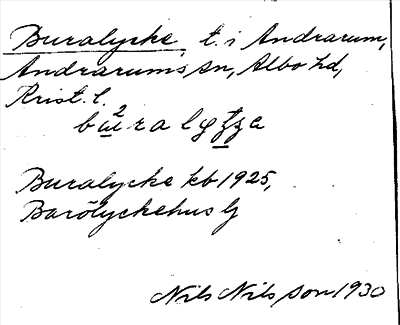 Buralycke, t. i Andrarum,
Andrarums sn, Albo hd,
Krist. l.
Buralycke kb 1925,
Barölyckehus Gj
Nils Nilsson 1930